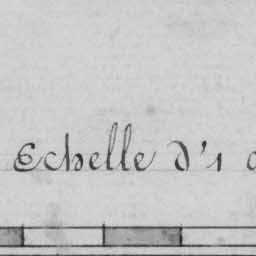 Echelle d'1